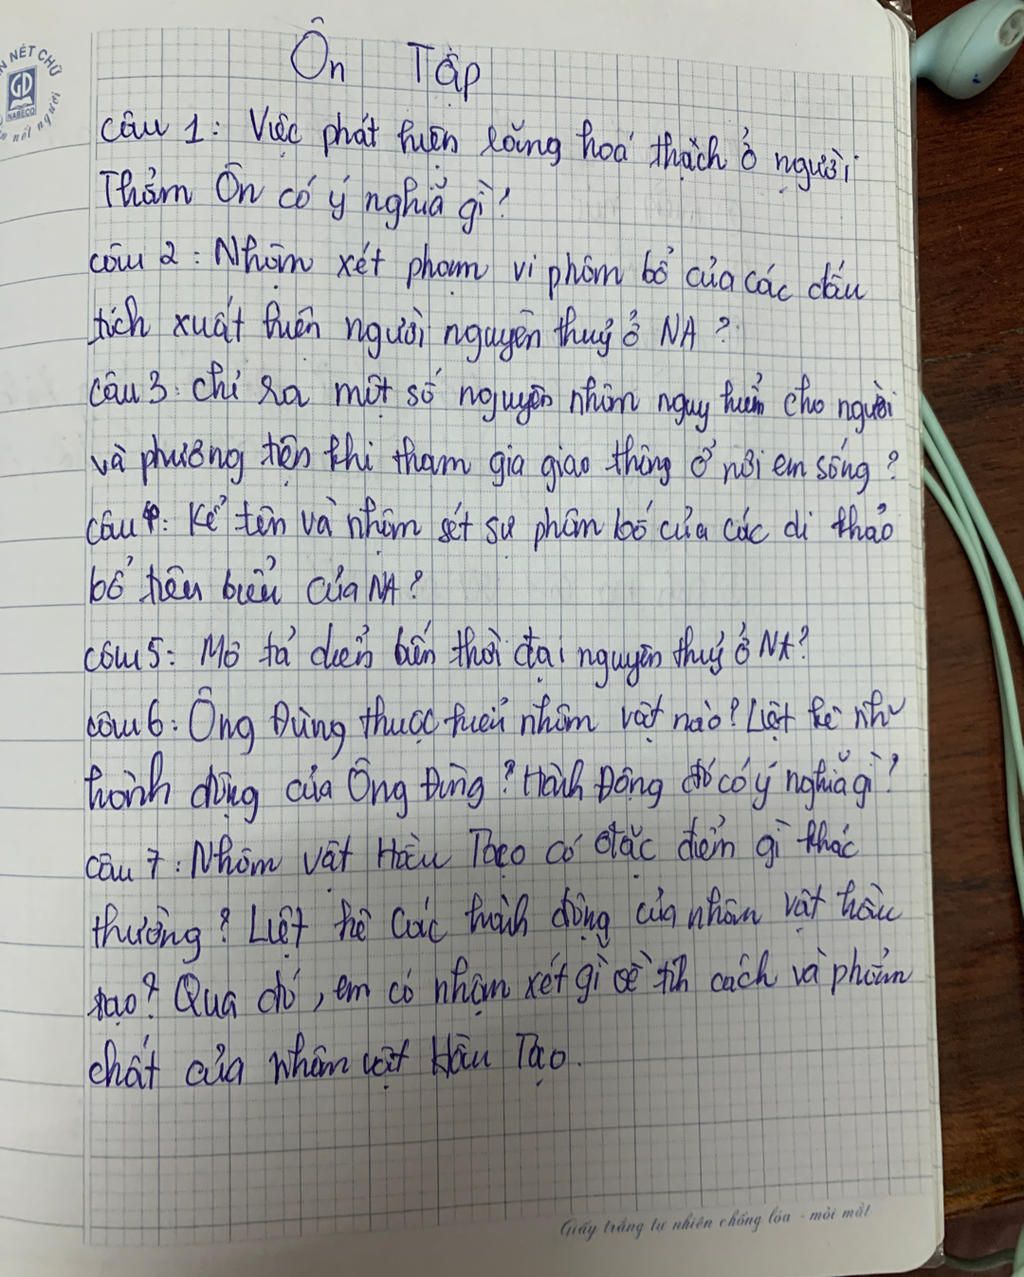 Ôn Tập
N NÉT CHỮ
GD
NABECO
n nết người
Câu 1: Việc phát hiện răng hoá thạch ở người
Thẩm Ồn có ý nghĩa gì?
Câu 2: Nhận xét phạm vi phân bố của các dấu
tích xuất hiện người nguyên thuỷ ở NA?
Câu 3: chỉ ra một số nguyên nhân nguy hiểm cho người
và phương tiện khi tham gia giao thông ở nơi em sống?
Câu 4: Kể tên và nhận sét sự phân bố của các di khảo
cổ tiêu biểu của NA?
Câu 5: Mô tả diễn biến thời đại nguyên thuỷ ở NA?
Câu 6: Ông Đùng thuộc kiểu nhân vật nào? Liệt kê như
hành động của Ông Đùng? Hành Động đó có ý nghĩa gì?
Câu 7: Nhân vật Hầu Tạo có đặc điểm gì khác
thường? Liệt kê các hành động của nhân vật hầu
tạo? Qua đó, em có nhận xét gì về tính cách và phẩm
chất của nhân vật Hầu Tạo.
Giấy trắng tự nhiên chống lóa - mỏi mắt